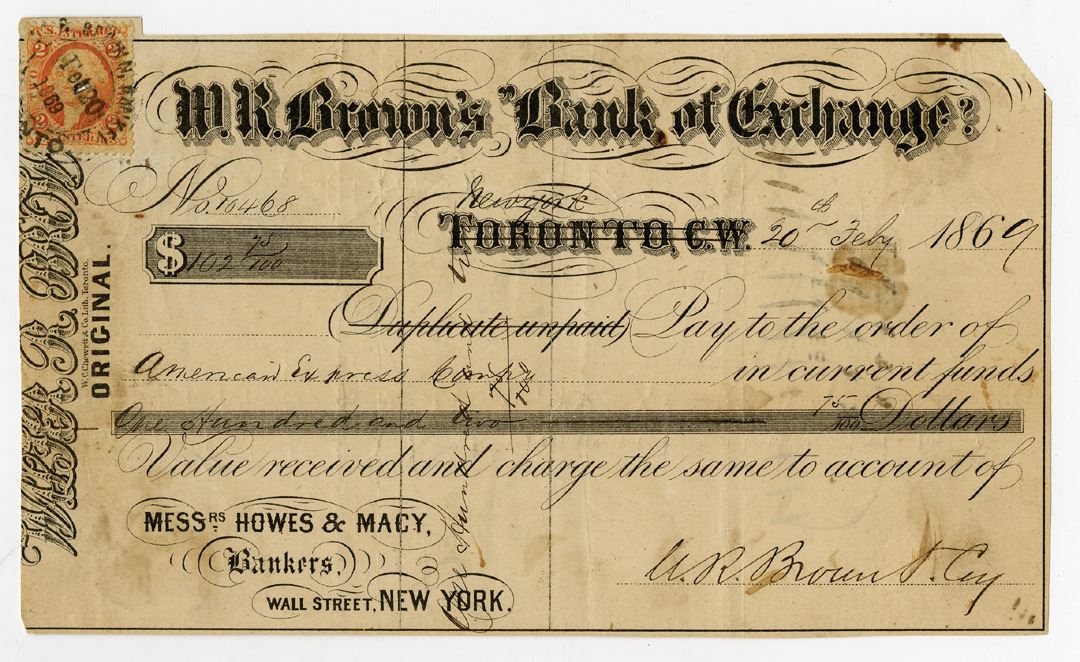 U.S. INTER. REV.
2 2
W. R. Brown's "Bank of Exchange"
No. 10468
New york
TORONTO, C.W. 20th Feby 1869
$102 75/100
(Duplicate unpaid) Pay to the order of
American Express Compy in current funds
One Hundred and two 75/100 Dollars
Value received and charge the same to account of
MESSRS. HOWES & MACY,
Bankers,
WALL STREET, NEW YORK.
W. R. Brown & Coy
ORIGINAL.
W. C. Chewett & Co. Lith. Toronto.
One Hundred and two